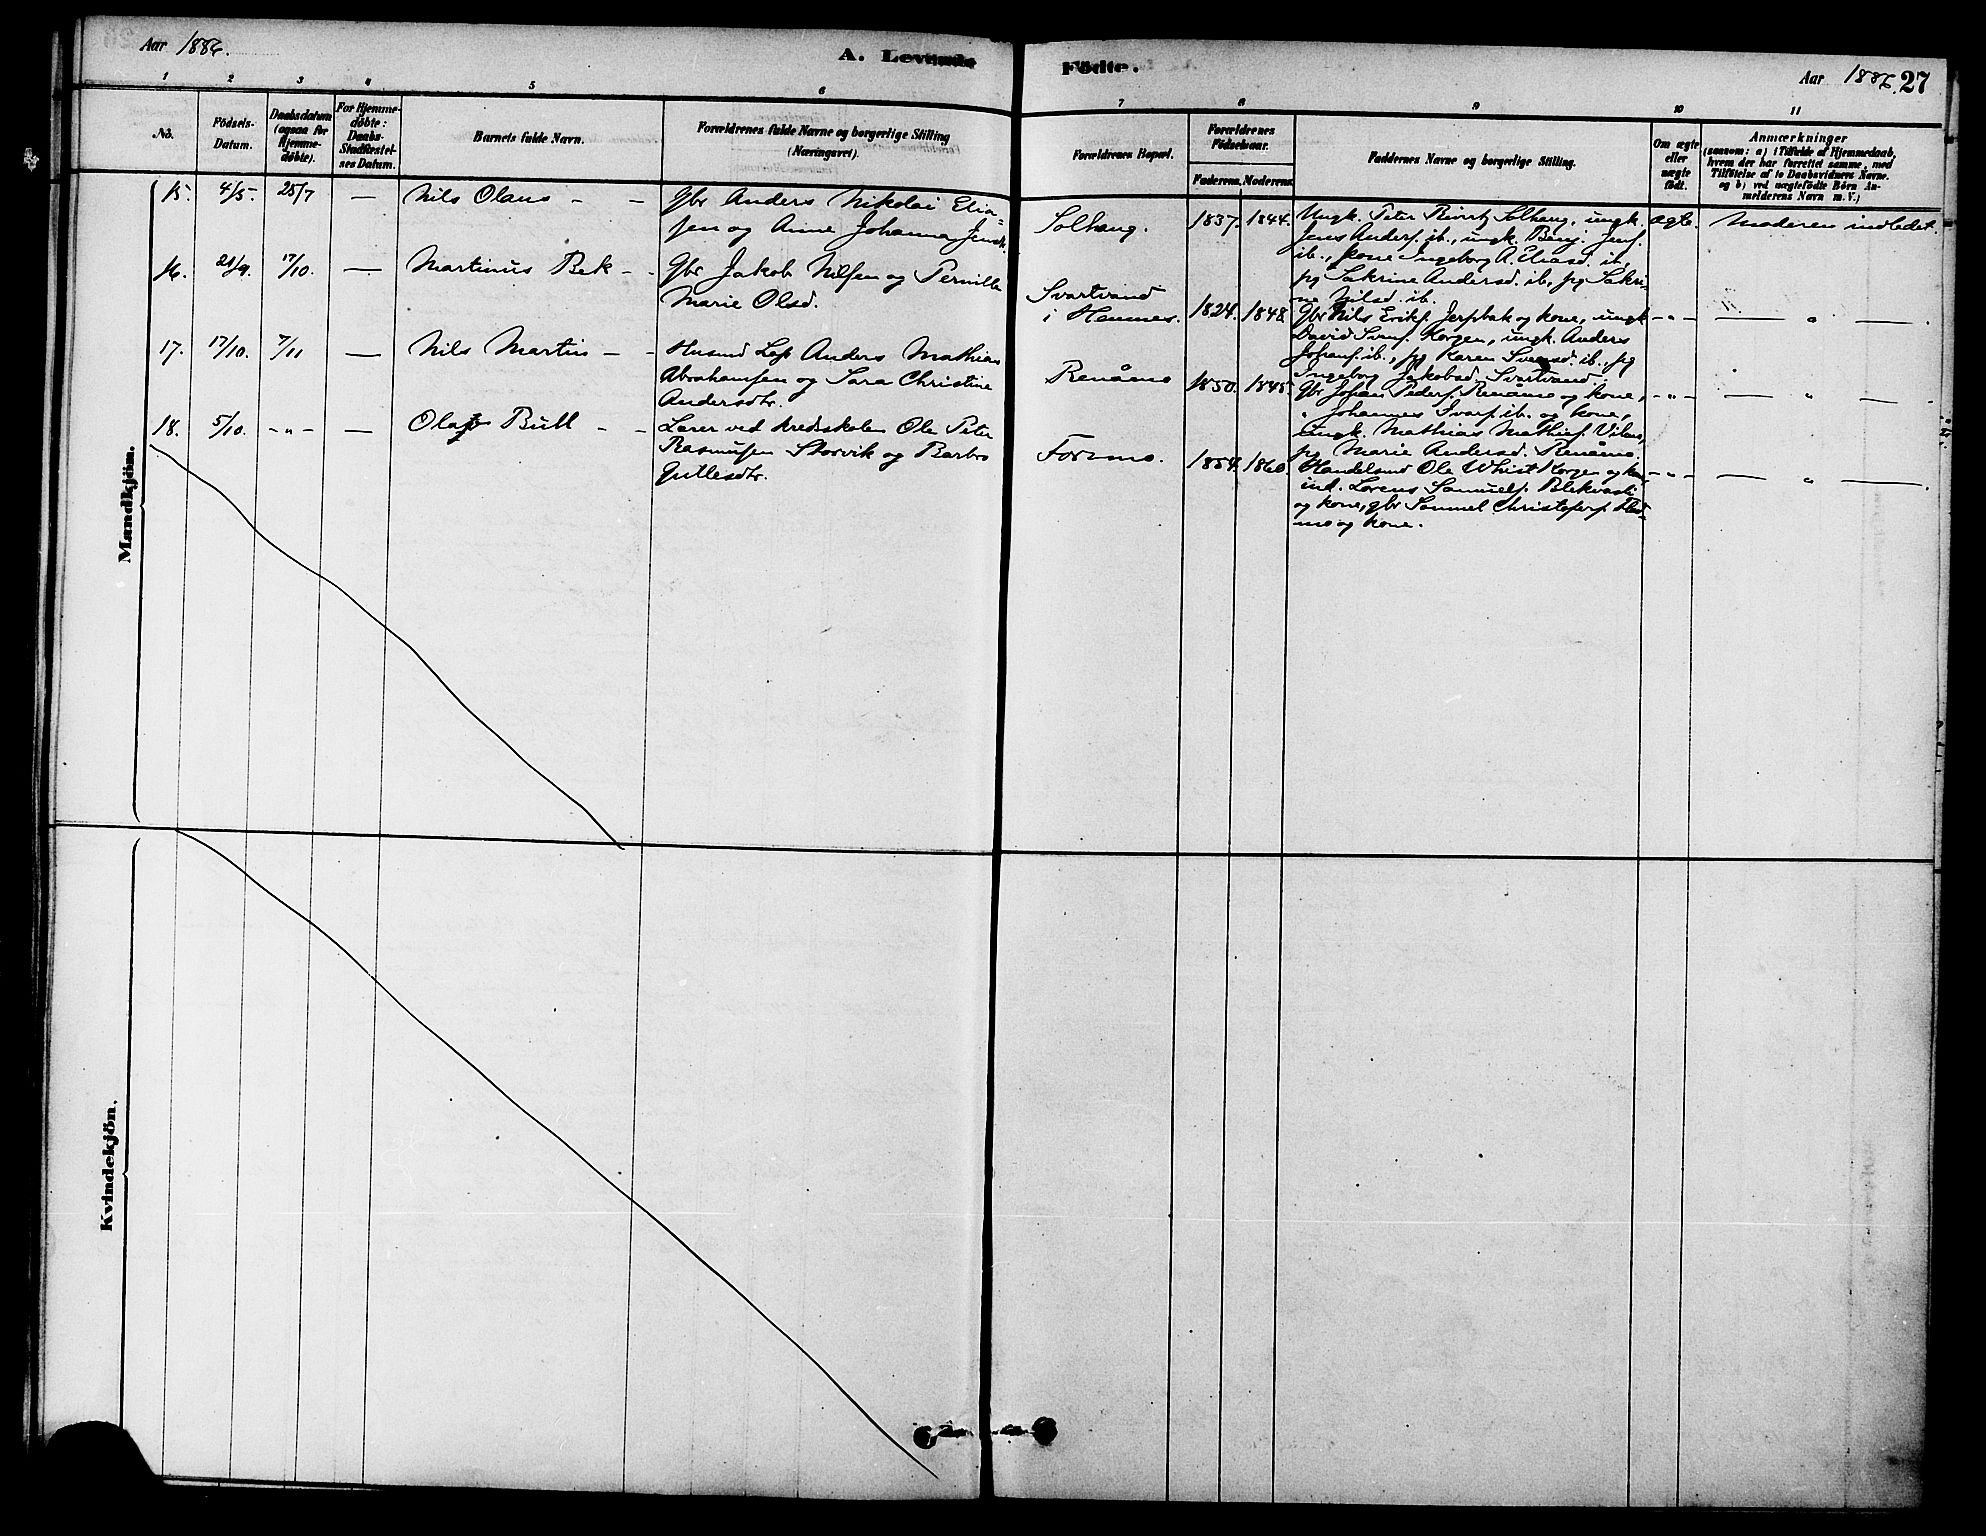 Aar 1886.
A. Levende
Födte.
Aar 1886.
27
1
2
3
4
5
6
7
8
9
10
11
No.
Födsels-
Datum.
Daabsdatum
(ogsaa for
Hjemme-
döbte).
For Hjemme-
döbte:
Daabs-
Stadfæstel-
ses Datum.
Barnets fulde Navn.
Forældrenes fulde Navne og borgerlige Stilling
(Næringsvei).
Forældrenes Bopæl.
Forældrenes
Födselsaar.
Faderens.
Moderens.
Faddernes Navne og borgerlige Stilling.
Om ægte
eller
uægte
födt.
Anmærkninger
(saasom: a) i Tilfælde af Hjemmedaab,
hvem der har forrettet samme, med
Tilföielse af to Daabsvidners Navne.
og b) ved uægtefödte Börn An-
melderens Navn m. V.)
Mandkjön.
15.
4/5.
25/7
—
Nils Olaus - -
Gbr Anders Nikolai Elia-
sen og Anne Johanna Jensd.
Solhaug.
1837.
1844.
Ungk. Peter Solhaug, ungk.
Jens Anders. ib., ungk. Benj. Jens.
ib., kone Ingeborg A. Eliasd. ib,
pg Sakrine Andersd. ib., pg Sakri-
ne Nilsd. ib.
ægte.
Moderen indledet.
16.
21/9.
17/10.
—
Martinus Bek - -
Gbr Jakob Nilsen og Pernille
Marie Olsd.
Svartvand
i Hemnes.
1824.
1848
Gbr Nils Eriks. Jerpbak og kone, ungk
David Svens. Korgen, ungk. Anders
Johans. ib., pg Karen Svensd. ib., pg
Ingeborg Jakobsd. Svartvand.
-"-
— " —.
17.
17/10.
7/11
—
Nils Martin - -
Husmd Lap Anders Mathias
Abrahamsen og Sara Christine
Andersdtr.
Renåmo
1850.
1845.
Gbr Johan Peders. Renåmo og kone,
" Johannes Ivars. ib. og kone,
ungk. Mathias Mathias.
pg Marie Andersd. Renåmo.
-"-
— " —.
18.
5/10.
-"-
—
Olaf Bull - -
Lærer ved kredsskolen Ole Peter
Rasmussen Storvik og Barbro
Gullesdtr.
Formo.
1854.
1860
Handelsmd Ole Whist Korgen og kone,
ind. Lorens Samuels.
og kone, gbr Samuel Christofers.
mo og kone.
-"-
— " —.
Kvindekjön.